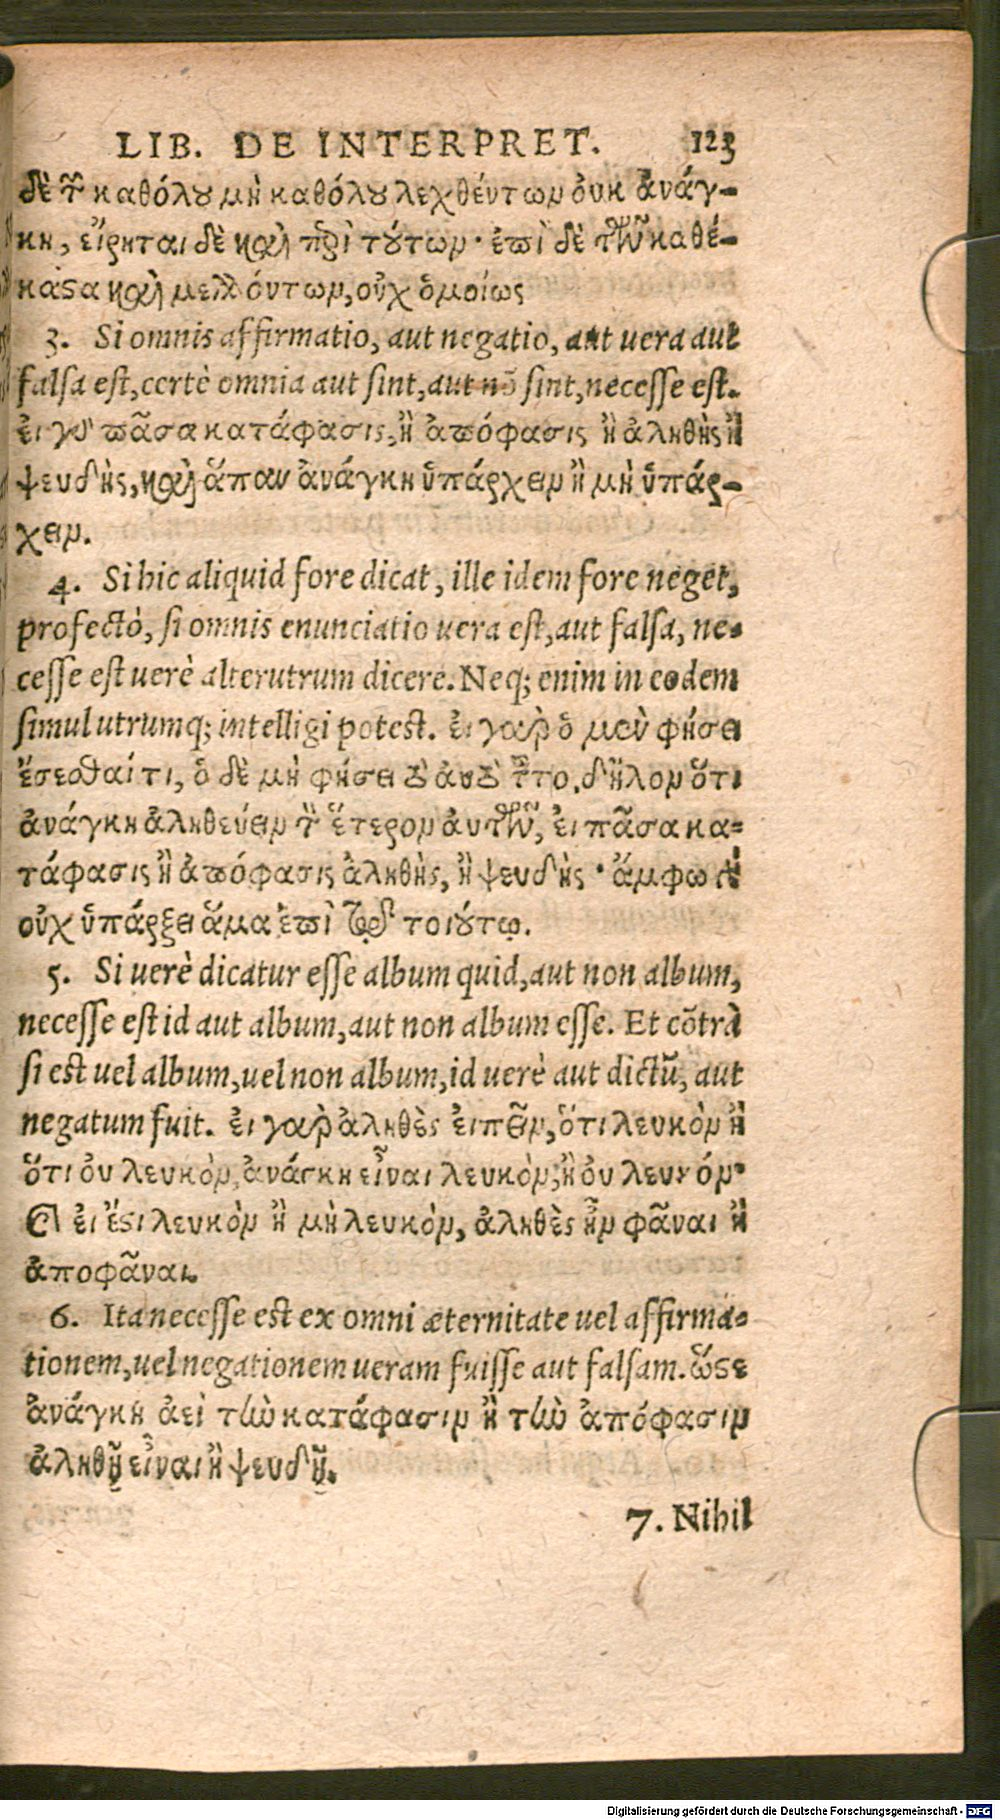 LIB. DE INTERPRET. 123
δὲ τῶν καθόλου μὴ καθόλου λεχθέντων οὐκ ἀνάγ-
κη, εἴρηται δὲ καὶ περὶ τούτων· ἐπὶ δὲ τῶν καθέ-
καστα καὶ μελλόντων, οὐχ ὁμοίως
3. Si omnis affirmatio, aut negatio, aut uera aut
falsa est, certè omnia aut sint, aut nō sint, necesse est.
εἰ γὰρ πᾶσα κατάφασις, ἢ ἀπόφασις ἢ ἀληθὴς ἢ
ψευδὴς, καὶ ἅπαν ἀνάγκη ὑπάρχειν ἢ μὴ ὑπάρ-
χειν.
4. Si hic aliquid fore dicat, ille idem fore neget,
profectò, si omnis enunciatio uera est, aut falsa, ne-
cesse est uerè alterutrum dicere. Neq; enim in eodem
simul utrumq; intelligi potest. εἰ γὰρ ὁ μὲν φήσει
ἔσεσθαί τι, ὁ δὲ μὴ φήσει τὸ αὐτὸ τοῦτο, δῆλον ὅτι
ἀνάγκη ἀληθεύειν τὸν ἕτερον αὐτῶν, εἰ πᾶσα κα-
τάφασις ἢ ἀπόφασις ἀληθὴς, ἢ ψευδὴς· ἄμφω γὰρ
οὐχ ὑπάρξει ἅμα ἐπὶ τῷ τοιούτῳ.
5. Si uerè dicatur esse album quid, aut non album,
necesse est id aut album, aut non album esse. Et cōtrà
si est uel album, uel non album, id uerè aut dictū, aut
negatum fuit. εἰ γὰρ ἀληθὲς εἰπεῖν, ὅτι λευκὸν ἢ
ὅτι οὐ λευκόν, ἀνάγκη εἶναι λευκὸν, ἢ οὐ λευκόν·
καὶ εἰ ἔστι λευκὸν ἢ μὴ λευκὸν, ἀληθὲς ἦν φᾶναι ἢ
ἀποφᾶναι.
6. Ita necesse est ex omni æternitate uel affirma-
tionem, uel negationem ueram fuisse aut falsam. ὥστε
ἀνάγκη ἀεὶ τὴν κατάφασιν ἢ τὴν ἀπόφασιν
ἀληθῆ εἶναι ἢ ψευδῆ.
7. Nihil
Digitalisierung gefördert durch die Deutsche Forschungsgemeinschaft - DFG